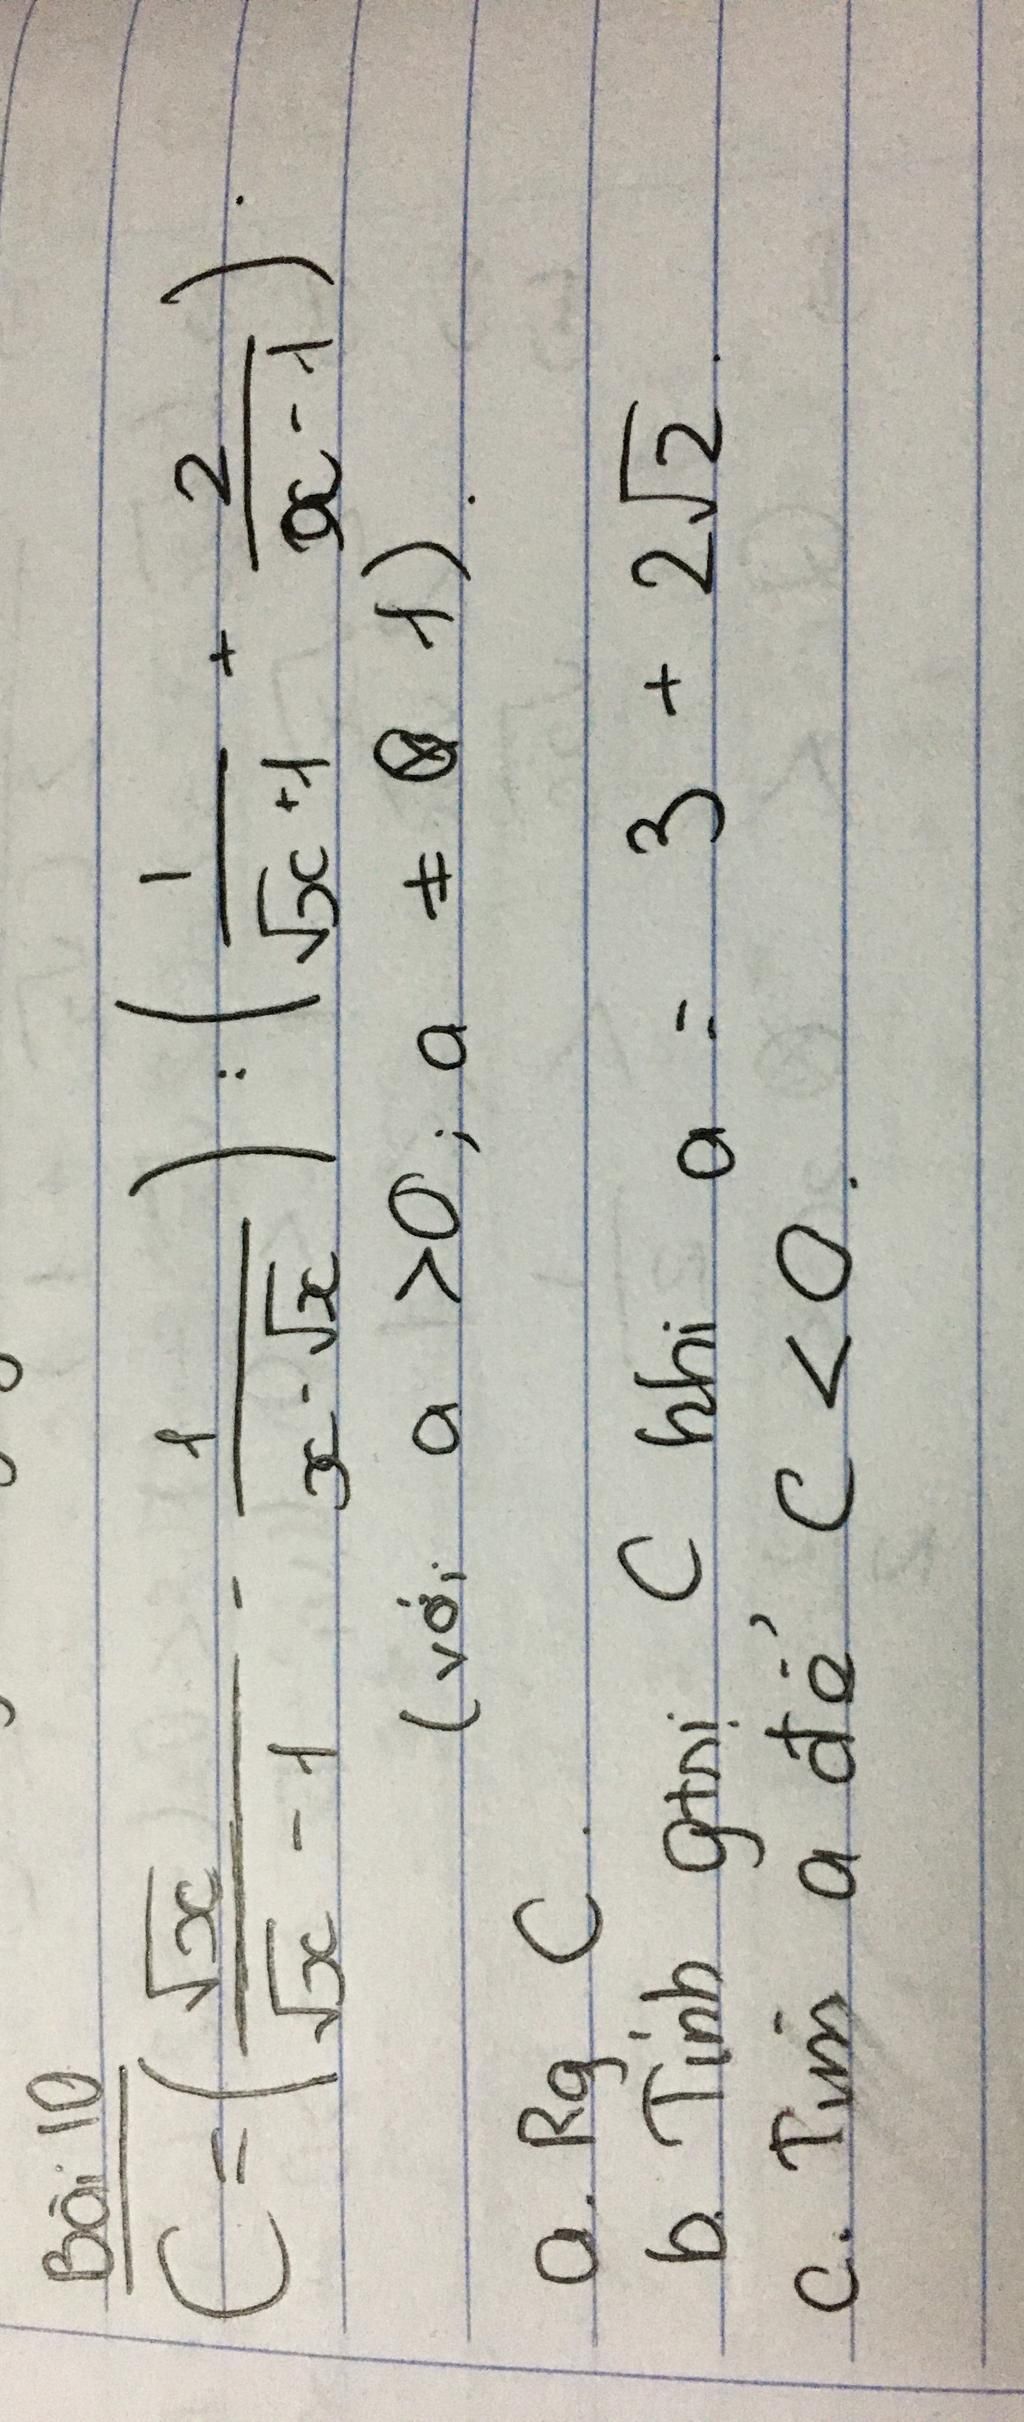 Bài 10
C = ( √x / (√x - 1) - 1 / (x - √x) ) : ( 1 / (√x + 1) + 2 / (x - 1) ).
(với a > 0 ; a ≠ 1).
a. Rg C.
b. Tính gtrị C khi a = 3 + 2√2.
c. Tìm a để C < 0.